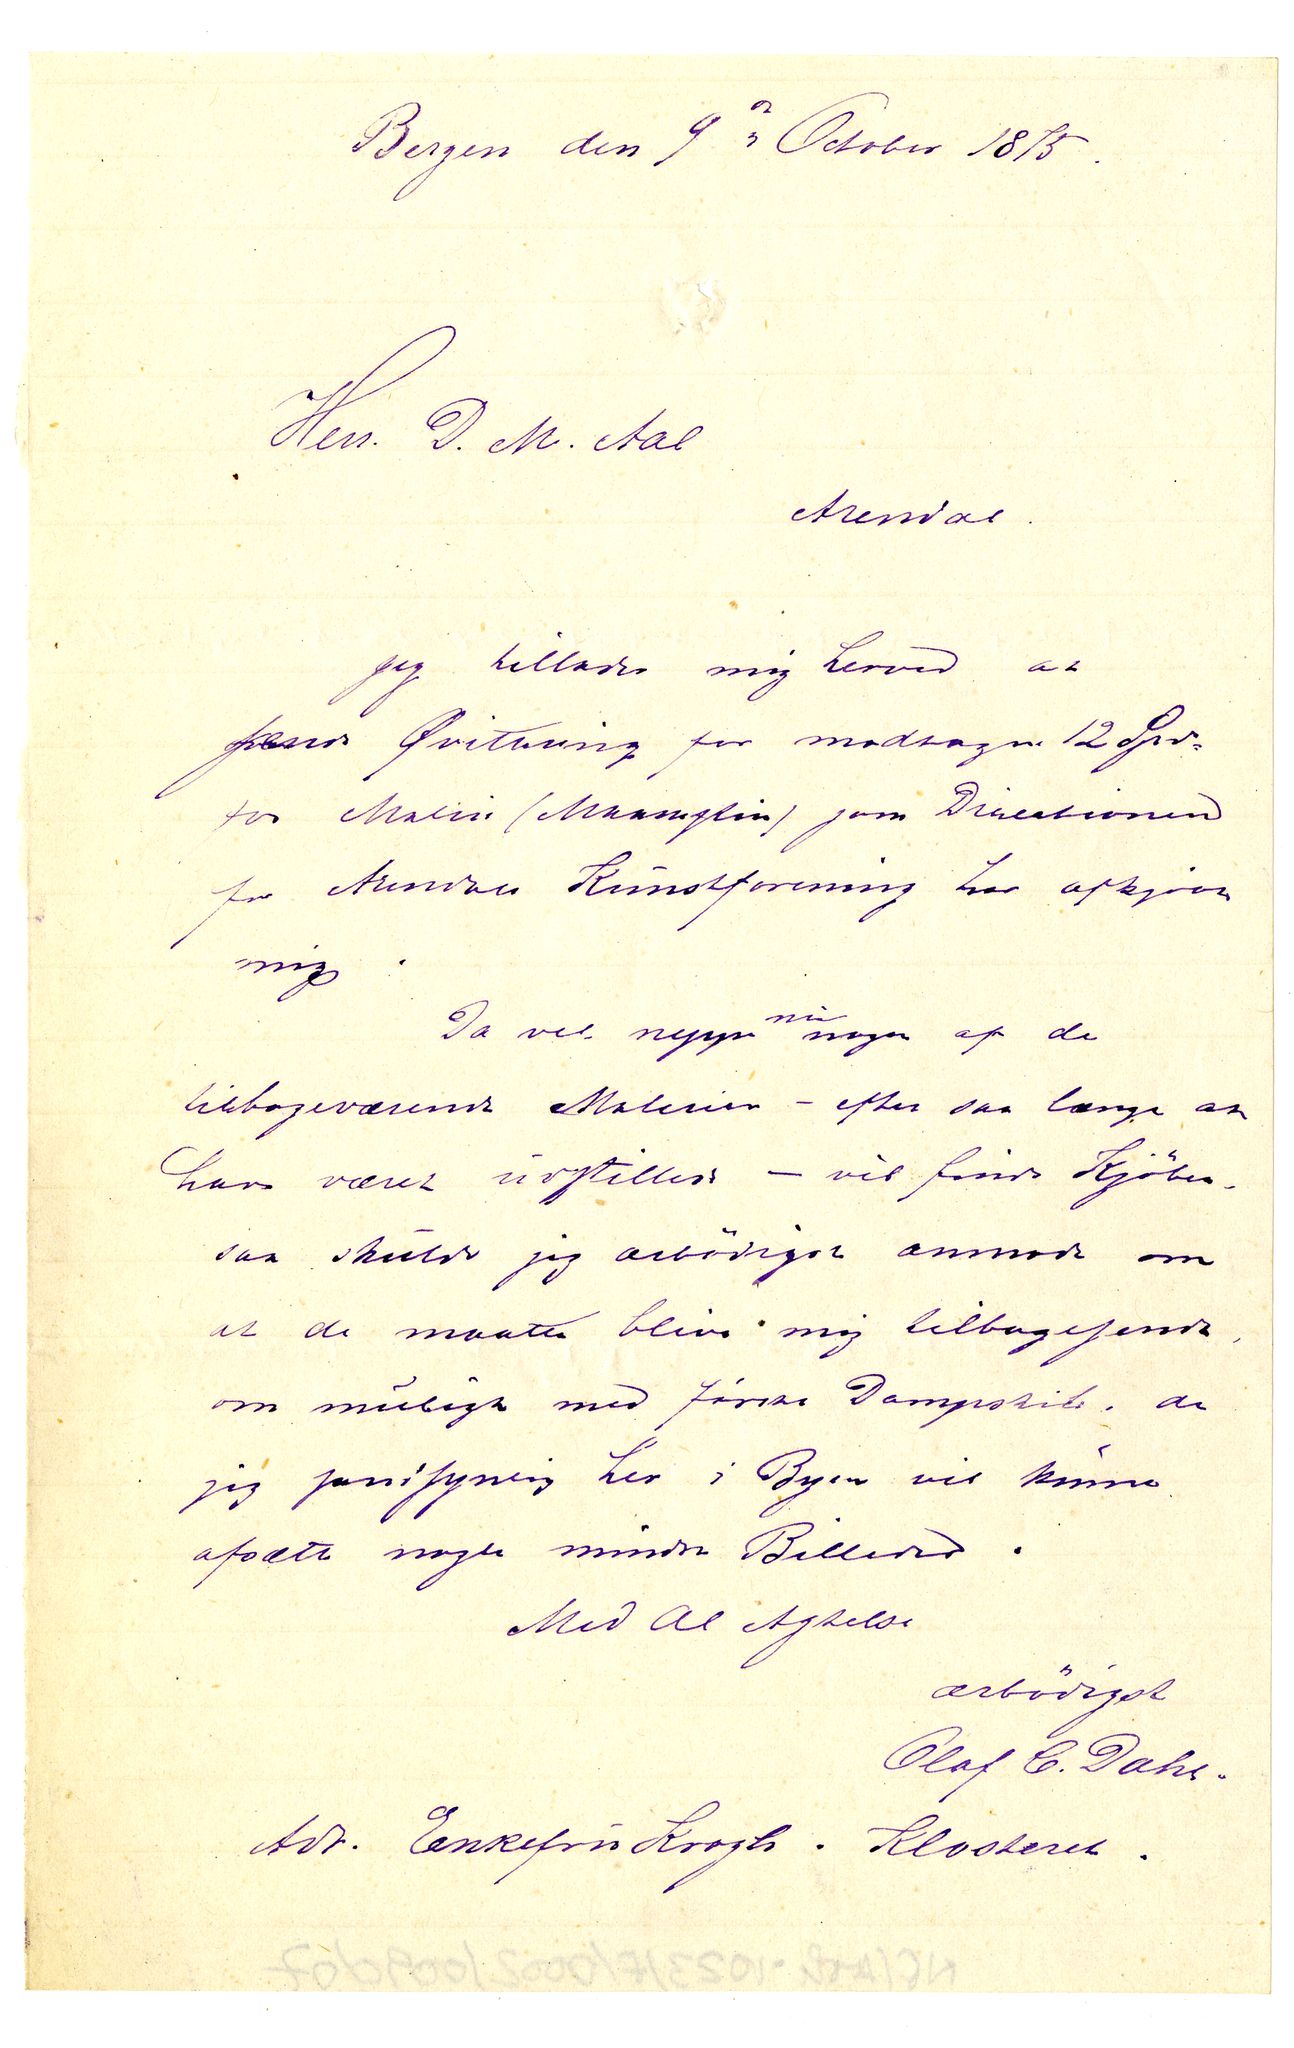 Bergen den 9de October 1875.
Herr. D. M. Aal
Arendal.
Jeg tillader mig herved at
sende Qvittering for modtagne 12 Spd.
for Maleri (Maaneskin) som Directionen
for Arendals Kunstforening har afkjøbt
mig.
Da vel neppe nu nogen af de
tilbageværende Malerier - efter saa længe at
have været udstillede - vil finde Kjöber,
saa skulde jeg ærbödigst anmode om
at de maatte blive mig tilbagesendt,
om muligt med første Dampskib, da
jeg sandsynlig her i Byen vil kunne
afsætte nogle mindre Billeder.
Med Al Agtelse
ærbödigst
Olaf C. Dahl.
Adr. Enkefru Krogh. Klosteret.
NE/Ark-1023/F/0002/0090/07